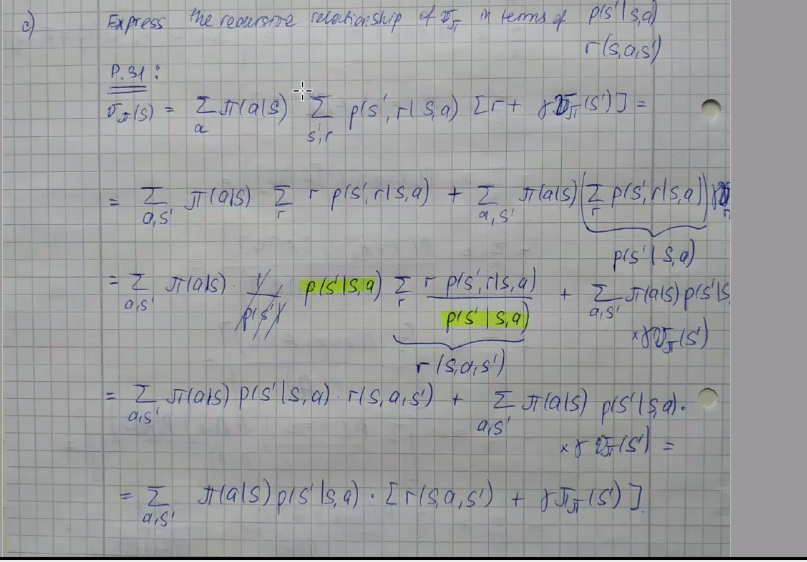 c) Express the recursive relationship of v_π in terms of p(s'|s,a)
r(s,a,s')
P.31:
v_π(s) = Σ_a π(a|s) Σ_{s',r} p(s',r|s,a) [r + γ v_π(s')] =
= Σ_{a,s'} π(a|s) Σ_r r p(s',r|s,a) + Σ_{a,s'} π(a|s) (Σ_r p(s',r|s,a)) γ
p(s'|s,a)
= Σ_{a,s'} π(a|s) p(s'|s,a) Σ_r r p(s',r|s,a) / p(s'|s,a) + Σ_{a,s'} π(a|s) p(s'|s,
×γ v_π(s')
r(s,a,s')
= Σ_{a,s'} π(a|s) p(s'|s,a) · r(s,a,s') + Σ_{a,s'} π(a|s) p(s'|s,a) ·
×γ v_π(s') =
= Σ_{a,s'} π(a|s) p(s'|s,a) · [r(s,a,s') + γ π_π(s')]